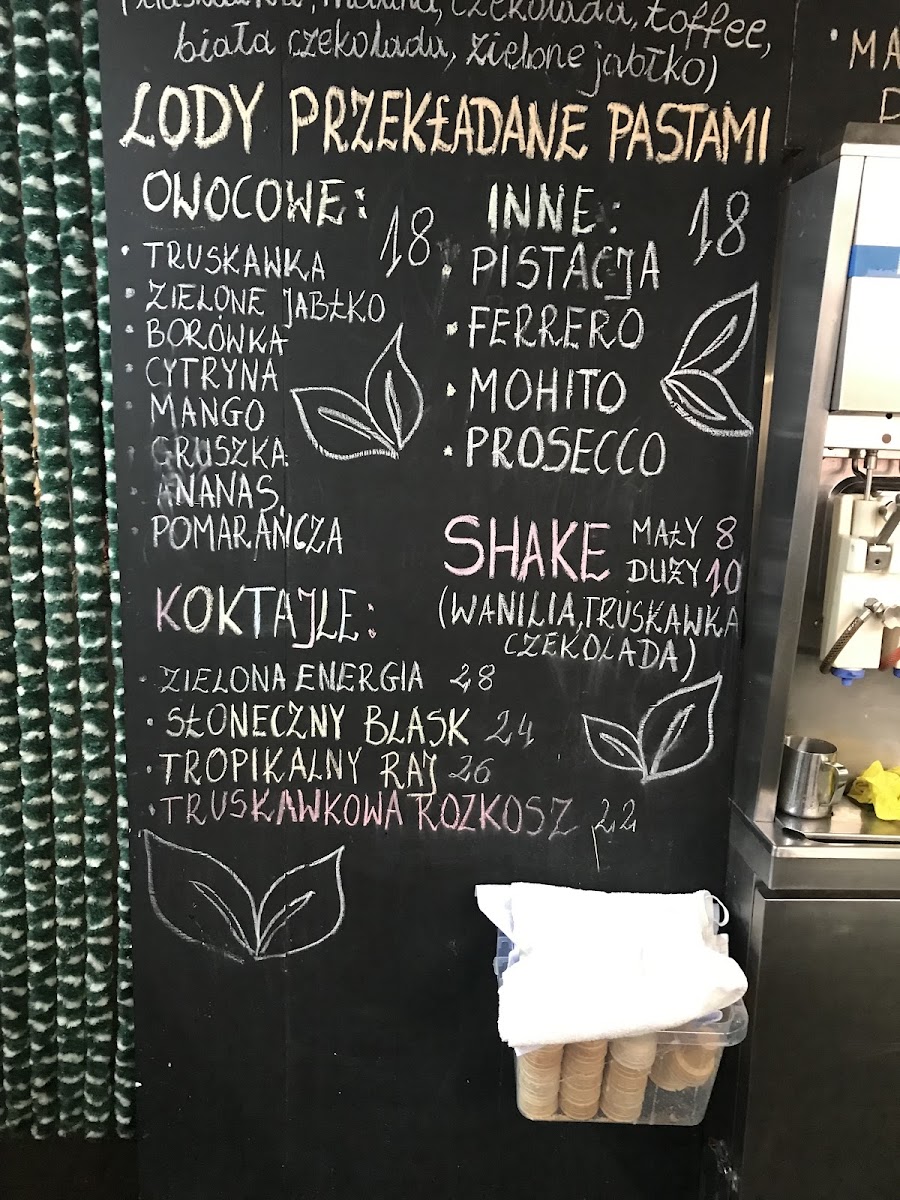 malina, czekolada, toffee,
biała czekolada, zielone jabłko)
LODY PRZEKŁADANE PASTAMI
OWOCOWE: 18
• TRUSKAWKA
• ZIELONE JABŁKO
• BORÓWKA
• CYTRYNA
• MANGO
• GRUSZKA
• ANANAS
• POMARAŃCZA
INNE: 18
• PISTACJA
• FERRERO
• MOHITO
• PROSECCO
SHAKE MAŁY 8
DUŻY 10
(WANILIA, TRUSKAWKA
CZEKOLADA)
KOKTAJLE:
• ZIELONA ENERGIA 28
• SŁONECZNY BLASK 24
• TROPIKALNY RAJ 26
• TRUSKAWKOWA ROZKOSZ 22